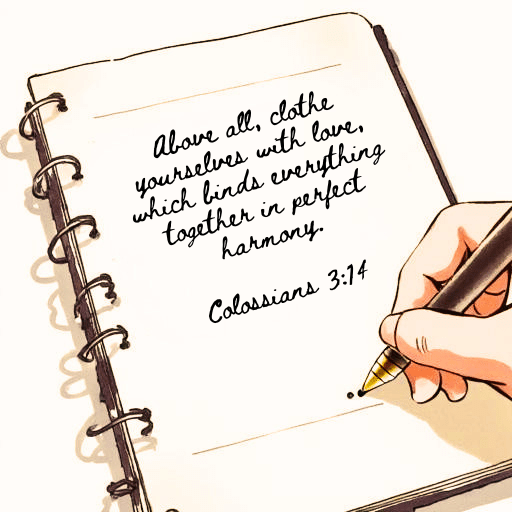 Above all, clothe
yourselves with love,
which binds everything
together in perfect
harmony.
Colossians 3:14